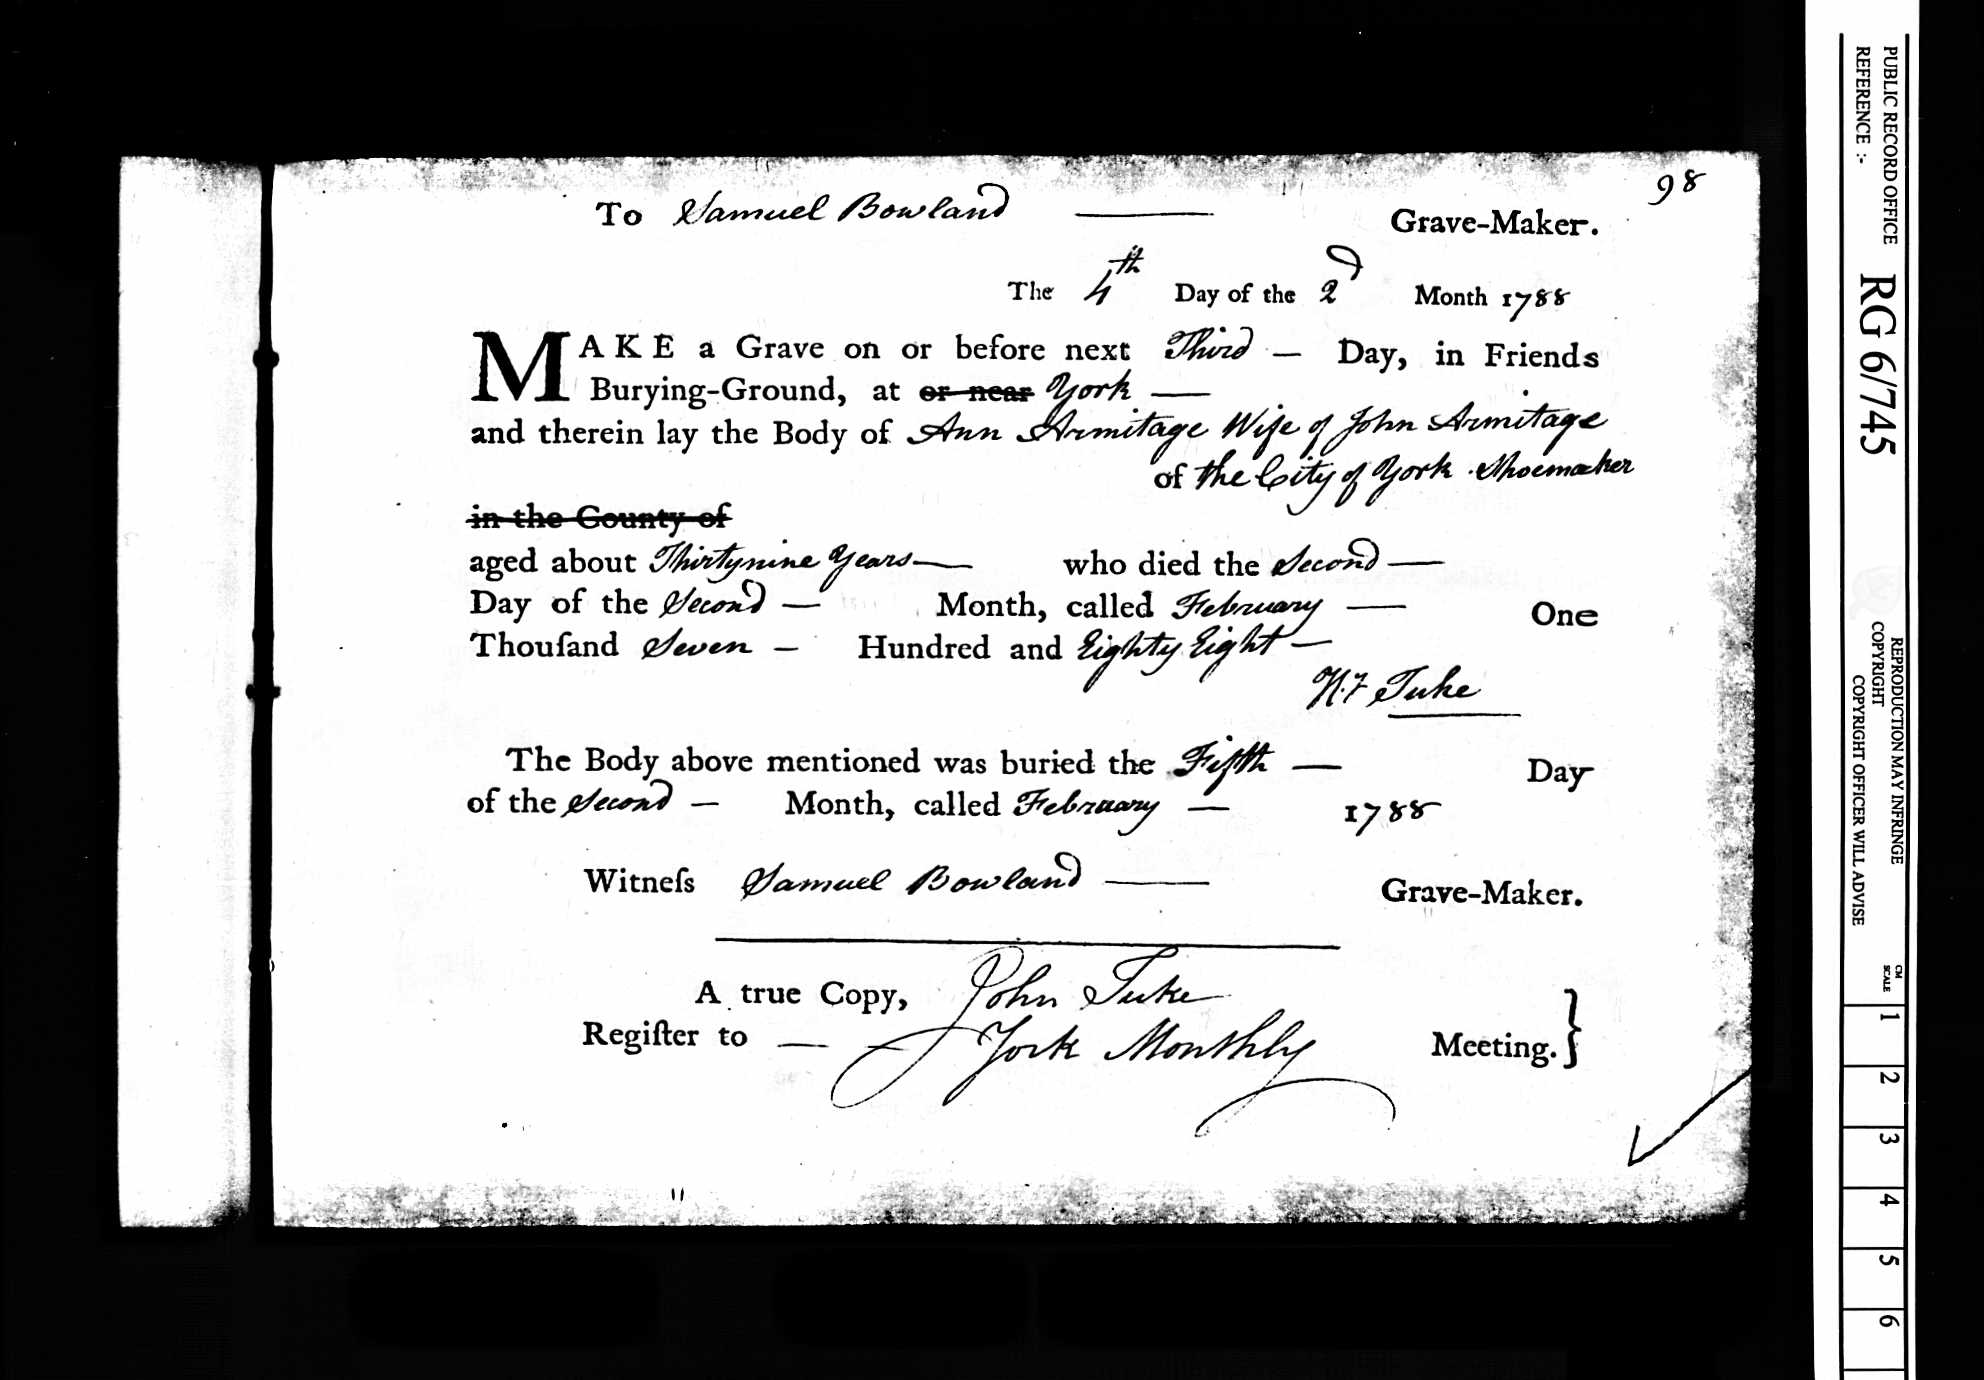 98
To Samuel Bowland Grave-Maker.
The 4th Day of the 2d Month 1788
MAKE a Grave on or before next Third — Day, in Friends
Burying-Ground, at or near York —
and therein lay the Body of Ann Armitage Wife of John Armitage
of the City of York Shoemaker
in the County of
aged about Thirtynine Years — who died the Second —
Day of the Second — Month, called February — One
Thouſand Seven — Hundred and Eighty Eight —
Tuke
The Body above mentioned was buried the Fifth — Day
of the Second — Month, called February — 1788
Witneſs Samuel Bowland — Grave-Maker.
A true Copy, John Tuke
Regiſter to — — York Monthly Meeting. }
PUBLIC RECORD OFFICE
REFERENCE :-
RG 6/745
REPRODUCTION MAY INFRINGE
COPYRIGHT
COPYRIGHT OFFICER WILL ADVISE
CM
SCALE
1
2
3
4
5
6